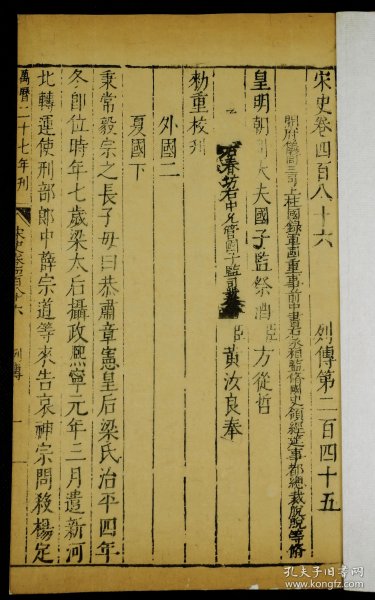 宋史卷四百八十六 列傳第二百四十五
開府儀同三司上柱國錄軍國重事前中書右丞相監修國史領經筵事都總裁脫脫等修
皇明朝列大夫國子監祭酒臣方從哲
右春坊右中允管國子監司業事臣黃汝良奉
勅重校刊
外國二
夏國下
秉常毅宗之長子母曰恭肅章憲皇后梁氏治平四年
冬卽位時年七歲梁太后攝政熙寧元年三月遣新河
北轉運使刑部郎中薛宗道等來告哀神宗問殺楊定
萬曆二十七年刊
宋史卷四百八十六 列傳
孔夫子旧书网